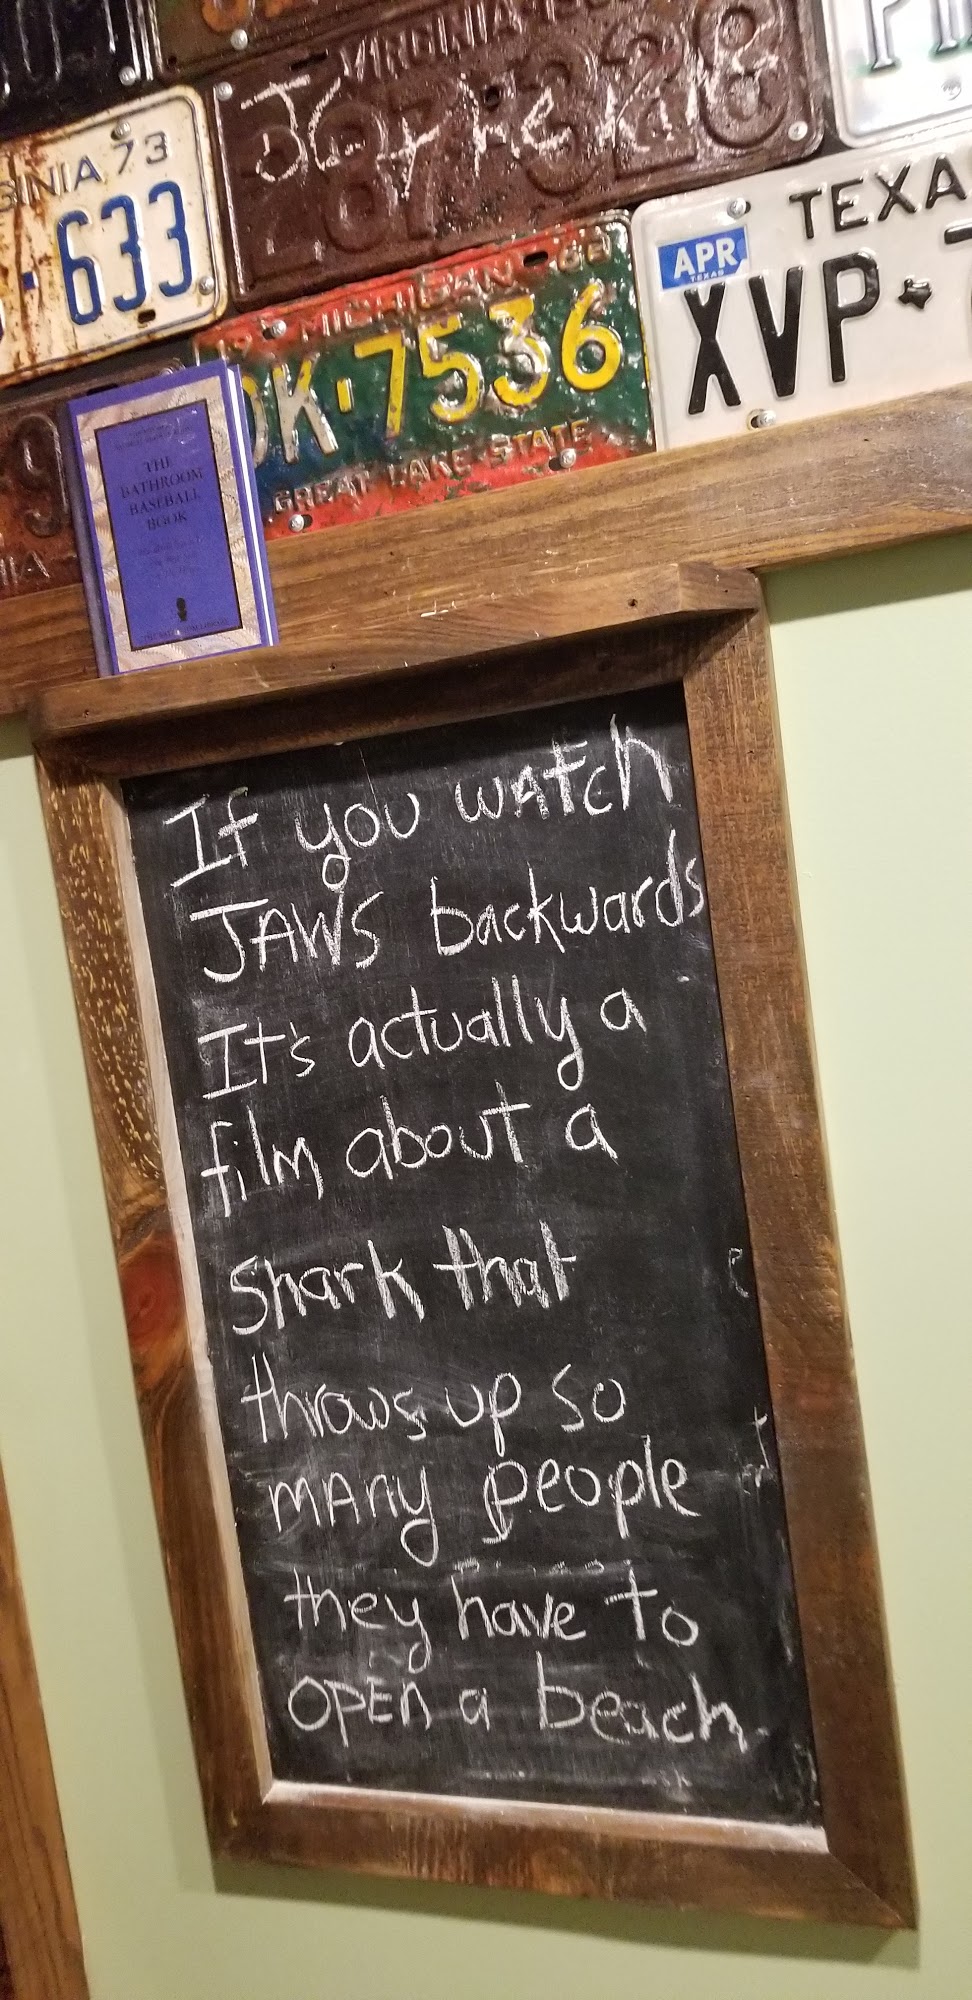 VIRGINIA
287 328
GINIA 73
633
TEXA
APR
TEXAS
XVP
MICHIGAN 68
DK·7536
GREAT LAKE STATE
9
IA
THE
BATHROOM
BASEBALL
BOOK
If you watch
JAWS backwards
It's actually a
film about a
shark that
throws up so
many people
they have to
OPEN a beach.